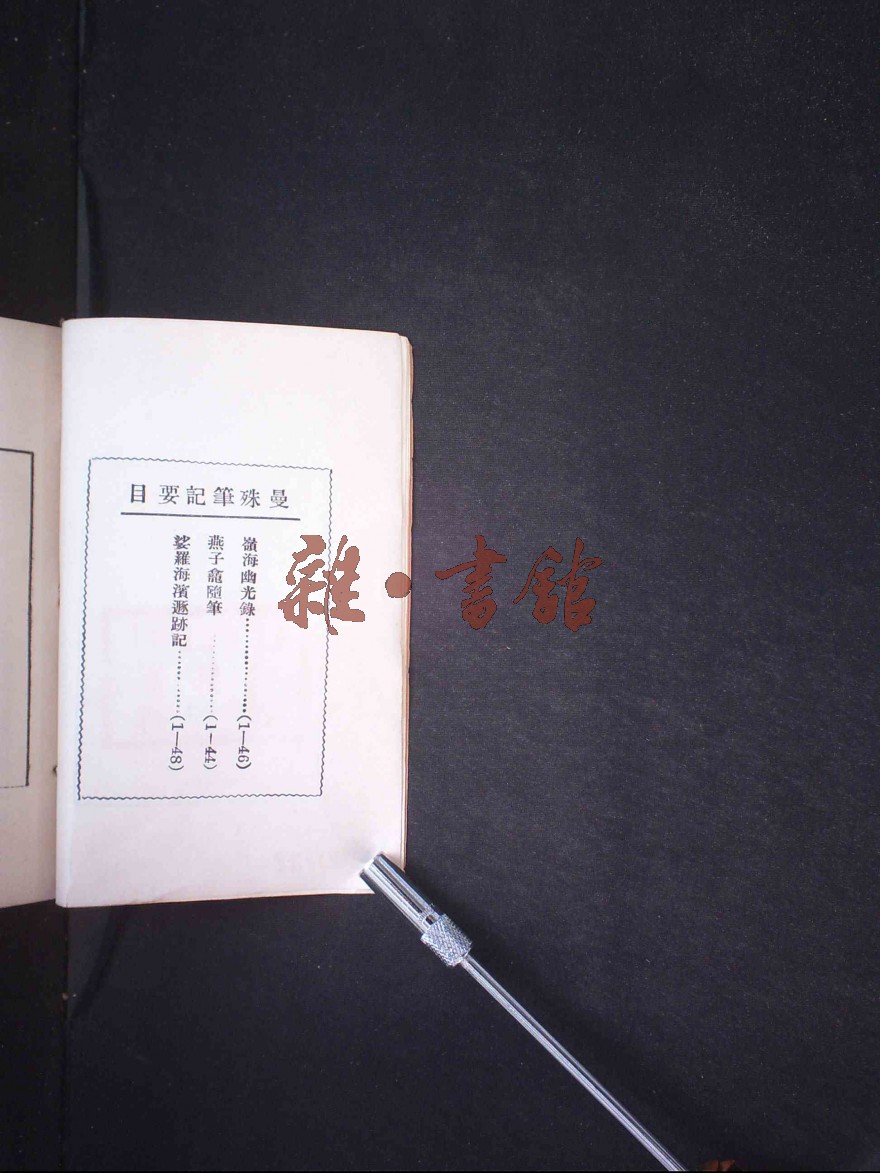 曼殊筆記要目
嶺海幽光錄…………………(1—46)
燕子龕隨筆…………………(1—44)
娑羅海濱遯跡記…………(1—48)
雜·書館